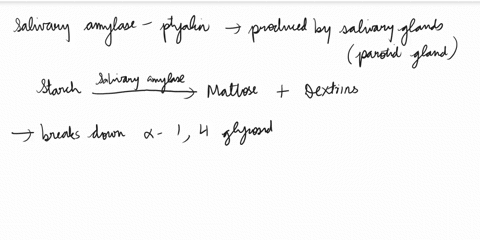 Salivary amylase - ptyalin → produced by salivary glands
(parotid gland)
Salivary amylase
Starch → Maltose + Dextrins
→ breaks down α- 1, 4 glycosid